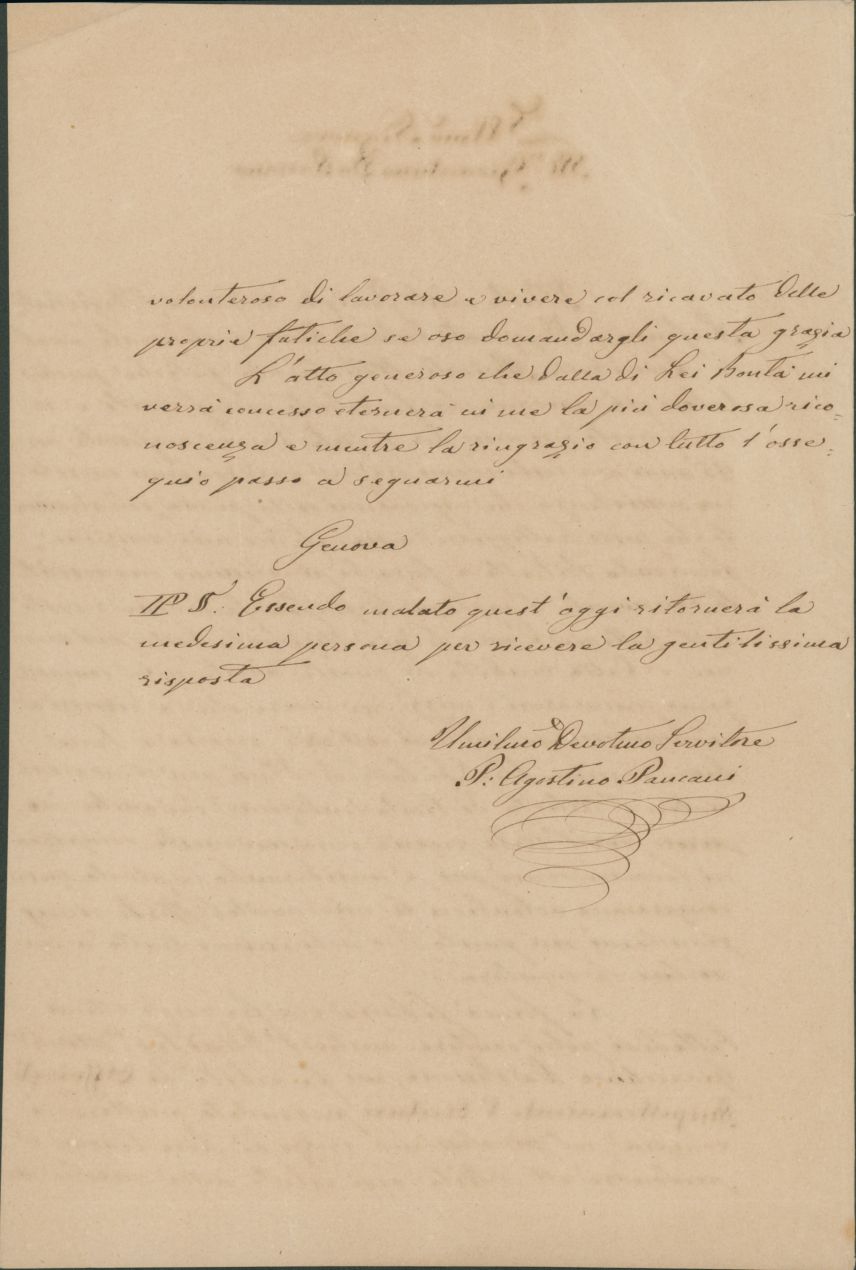 volonteroso di lavorare e vivere col ricavato delle
proprie fatiche se oso domandargli questa grazia
L'atto generoso che dalla di Lei Bontà mi
verrà concesso eternerà in me la più doverosa rico=
noscenza e mentre la ringrazio con tutto l'osse=
quio passo a segnarmi
Genova
PS. Essendo malato quest'oggi ritornerà la
medesima persona per ricevere la gentilissima
risposta
Umilmo Devotmo Servitore
P: Agostino Pancani